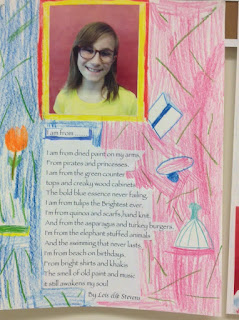 I am from
I am from dried paint on my arms,
From pirates and princesses.
I am from the green counter
tops and creaky wood cabinets
The bold blue essence never failing.
I am from tulips the Brightest ever.
I'm from quinoa and scarfs, hand knit.
And from the asparagus and turkey burgers.
I'm from the elephant stuffed animals
And the swimming that never lasts.
I'm from beach on birthdays.
From bright shirts and khakis
The smell of old paint and music
It still awakens my soul
By Stevens